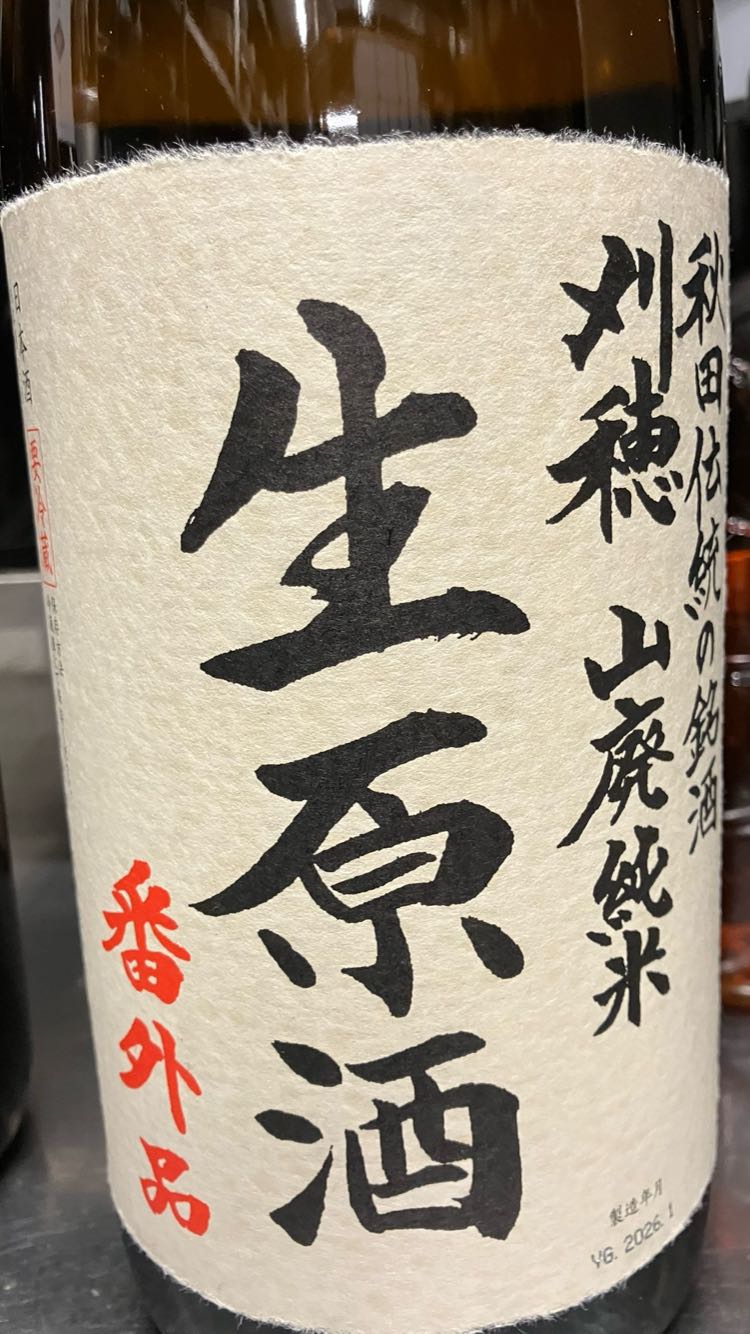 秋田伝統の銘酒
刈穂 山廃純米
生原酒
番外品
日本酒
要冷蔵
製造年月
YG. 2026.1